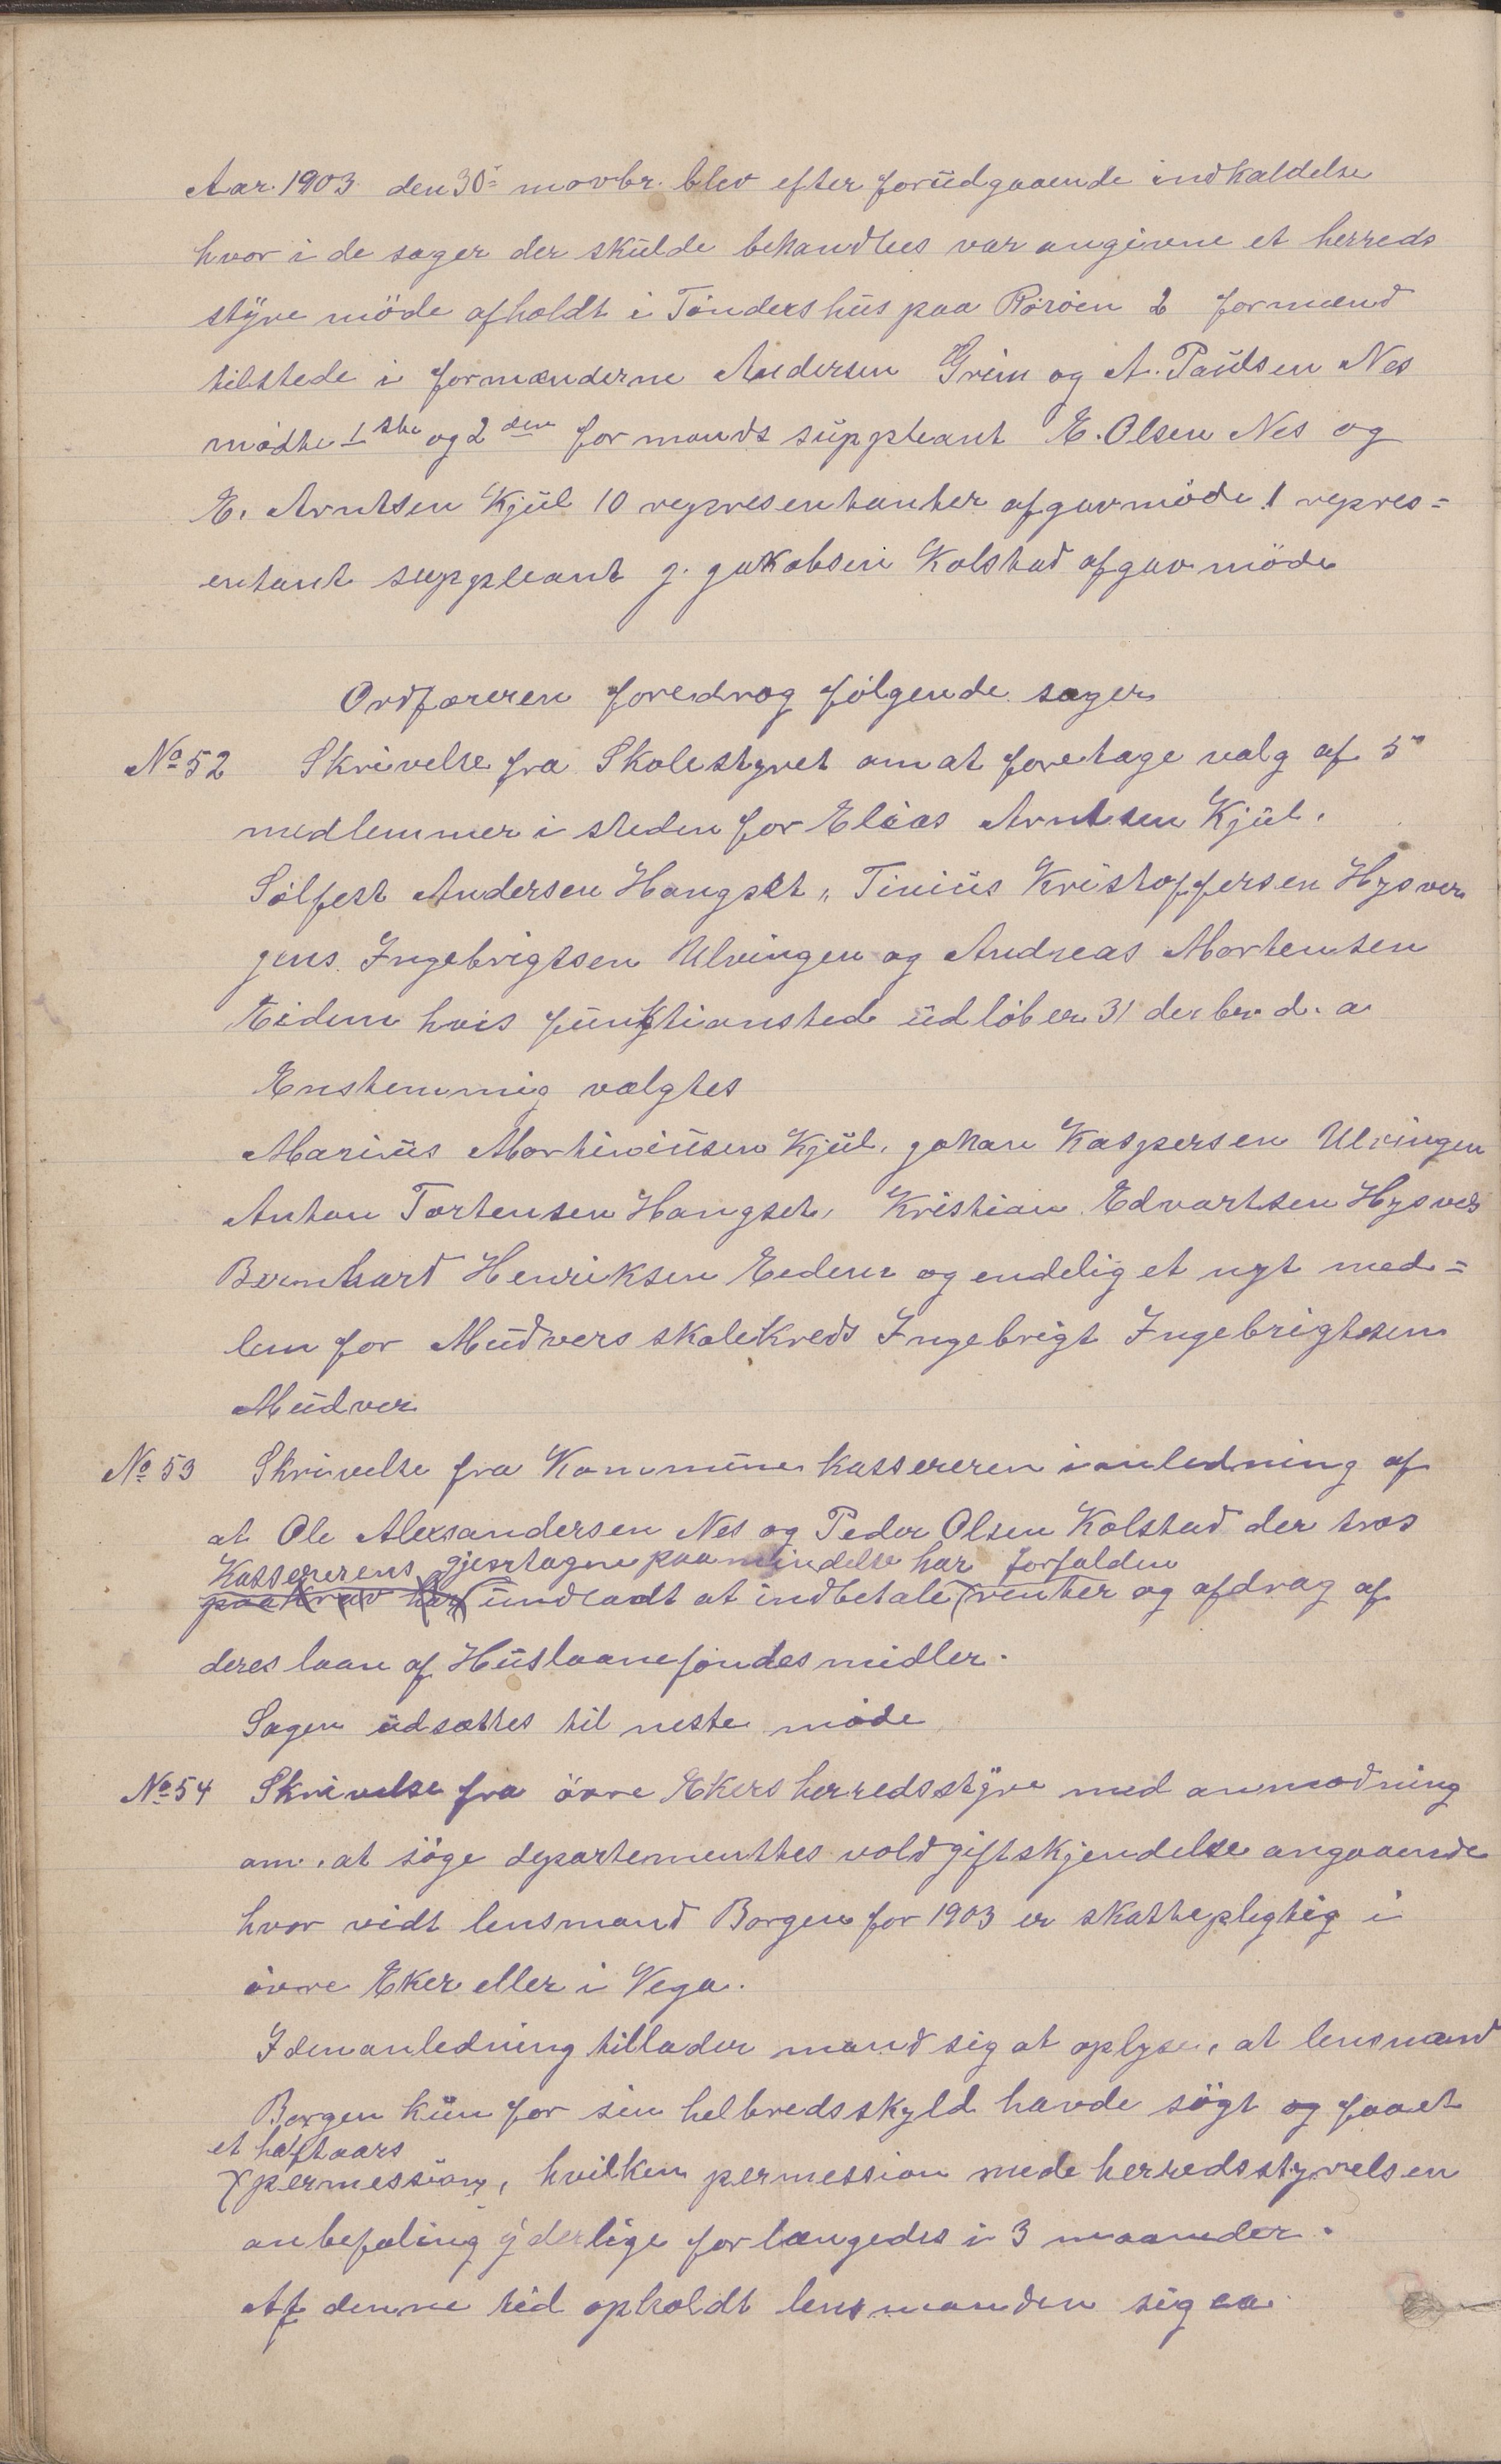 Aar. 1903 den 30- movbr. blev efter forudgaaende indkaldelse
hvor i de sager der skulde behandlees var angivne et herreds
styre möde afholdt i Tönders hus paa Röröen 2 formænd
tilstede i formænderne Andersen Grim og A. Paulsen Nes
mödte 1ste og 2den formands suppleant E. Olsen Nes og
E. Arntsen Kjul 10 representanter afgav möde 1 repres=
entant suppleant J. Jakobsen Kolstad afgav möde
Ordföreren foredrog fölgende sager
No 52 Skrivelse fra Skolestyret om at foretage valg af 5
medlemmer i steden for Elias Arntsen Kjul,
Sölfest Andersen Hangset, Tinius Kristoffersen Hysver
Jens Ingebrigtsen Ulvingen og Andreas Mortensen
Eidem hvis funktionsted udlöber 31 decbr d. a
Enstemmig valgtes
Marius Martiniusen Kjul, Johan Kaspersen Ulvingen
Anton Tortensen Hangset, Kristian Edvartsen Hysver
Bernhard Henriksen Eedem og endelig et nyt med=
lem for Mudvers skolekreds Ingebrigt Ingebrigtsen
Mudver
No 53 Skrivelse fra Kommunekassereren i anledning af
at Ole Alexsandersen Nes og Peder Olsen Kolstad der tros
Kassererens gjentagne paamindelse har forfalden
paakrav har undladt at indbetale renter og afdrag af
deres laan af Huslaanefondes midler.
Sagen udsættes til neste möde
No 54 Skrivelse fra övre Ekers herredsstyre med anmodning
om, at söge departementtes voldgiftskjendelse angaaende
hvor vidt lensmand Borgen for 1903 er skattepligtig i
övre Eker eller i Vega.
I den anledning tillader mand sig at oplyse, at lensmand
Borgen kun for sin helbredsskyld havde sögt og faaet
et halftaars
permession, hvilken permession mede herredsstyrelsen
anbefaling yderlige forlængedes i 3 maaneder.
Af denne tid opholdt lensmanden sig ca